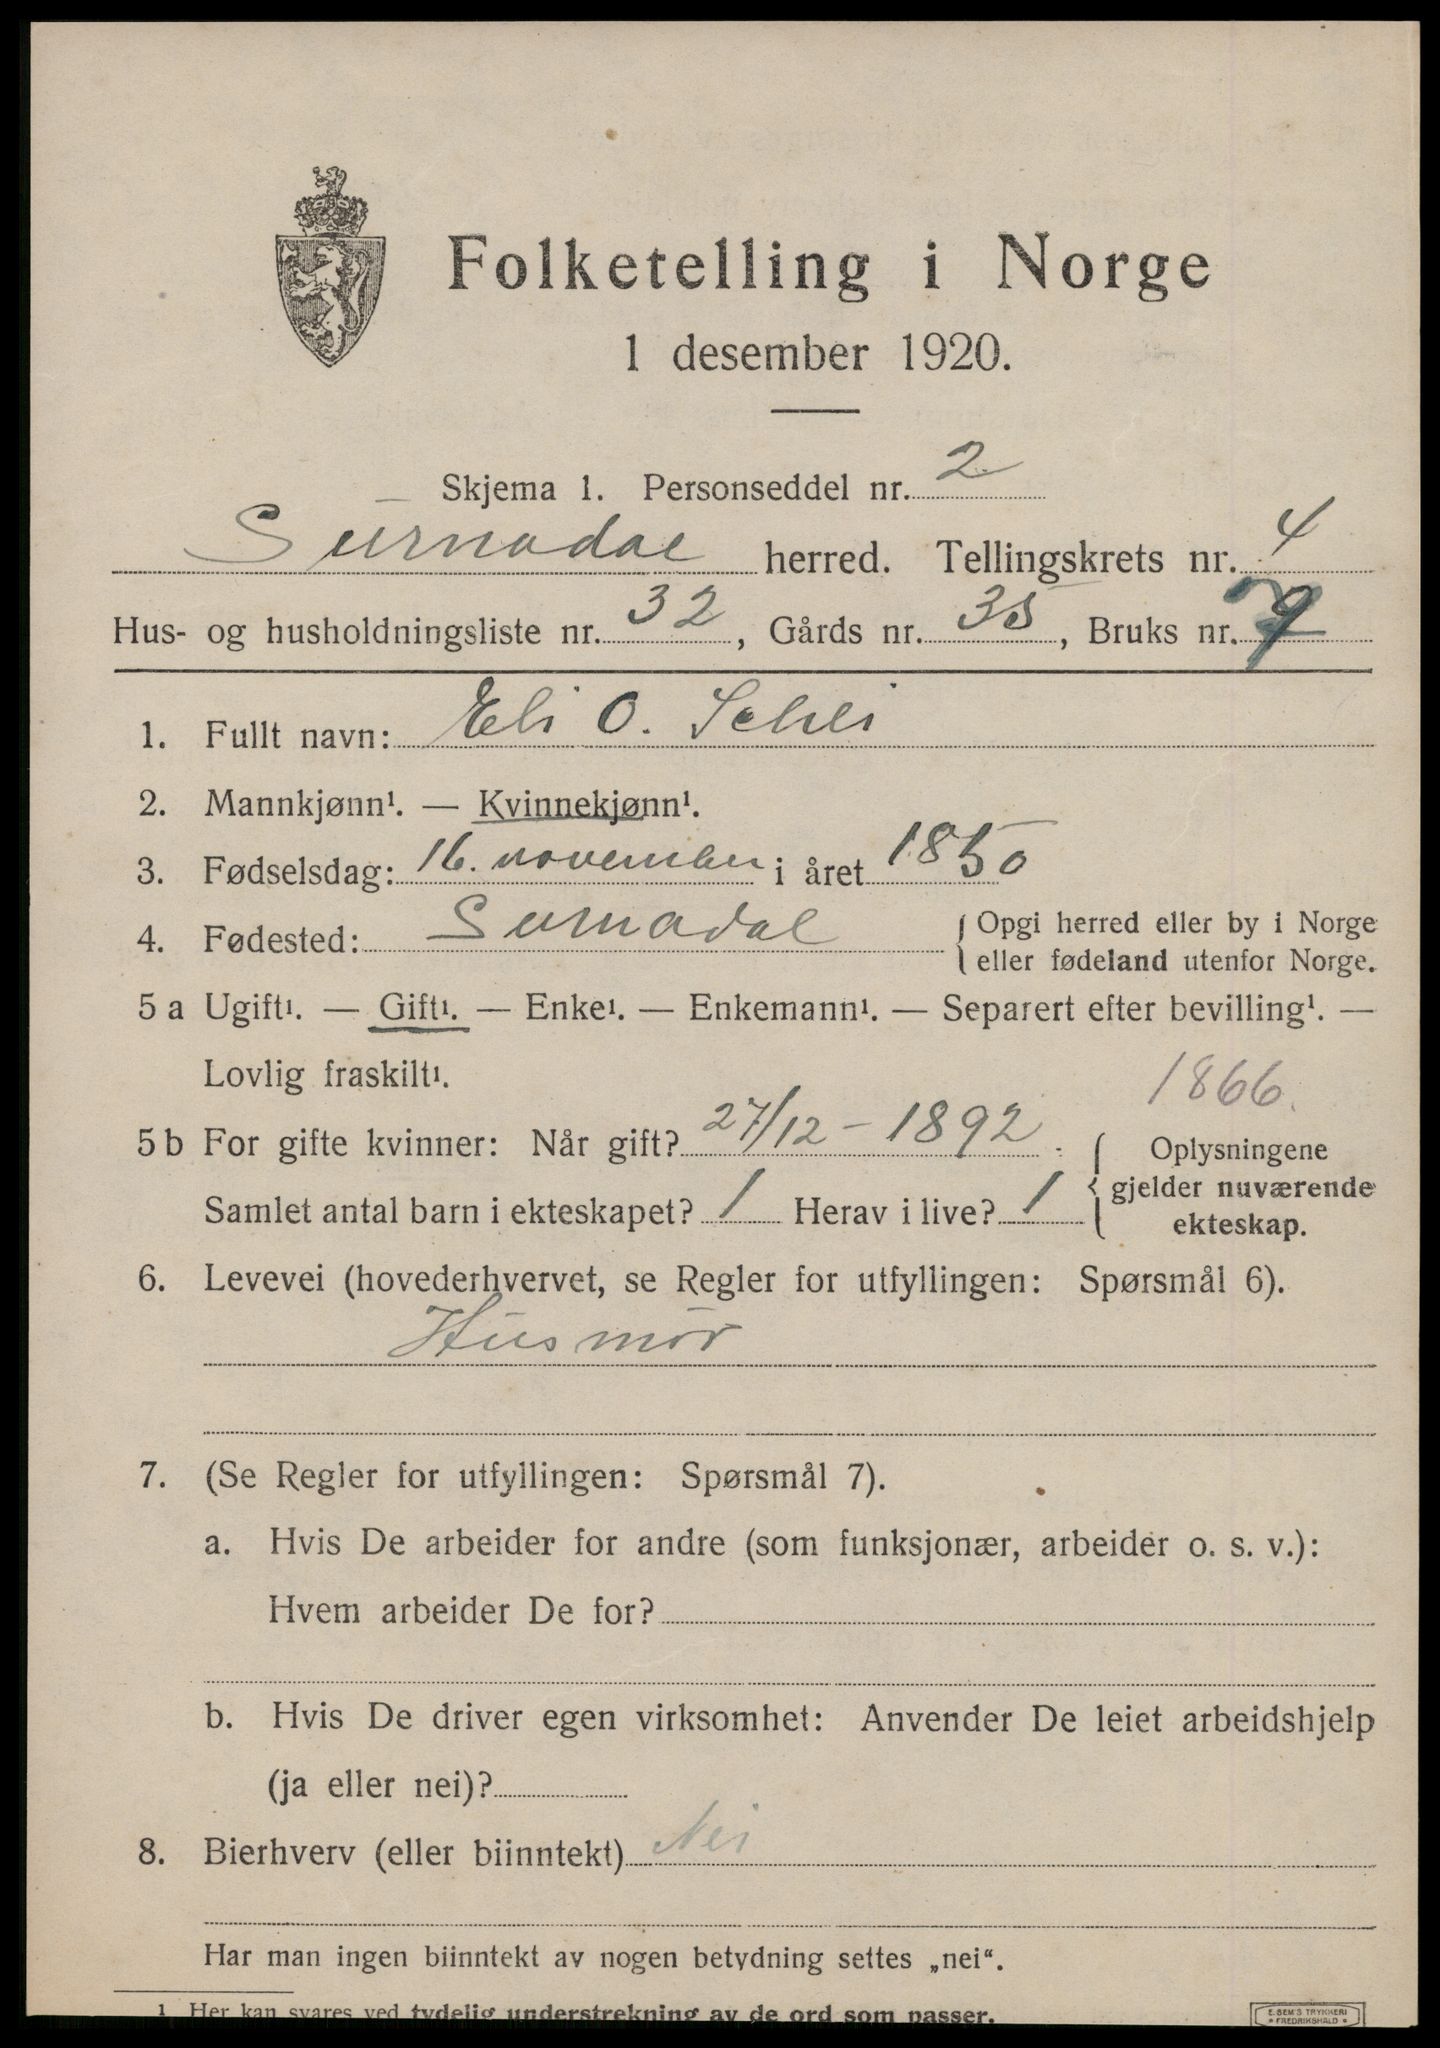 Folketelling i Norge
1 desember 1920.
Skjema 1. Personseddel nr. 2
Surnadal herred. Tellingskrets nr. 4
Hus- og husholdningsliste nr. 32, Gårds nr. 35, Bruks nr.
1. Fullt navn: Eli O. Schei
2. Mannkjønn¹. — Kvinnekjønn¹.
3. Fødselsdag: 16. november i året 1850
4. Fødested: Surnadal { Opgi herred eller by i Norge
eller fødeland utenfor Norge.
5 a Ugift¹. — Gift¹. — Enke¹. — Enkemann¹. — Separert efter bevilling¹. —
Lovlig fraskilt¹.
1866.
5 b For gifte kvinner: Når gift? 27/12 - 1892 { Oplysningene
gjelder nuværende
Samlet antal barn i ekteskapet? 1 Herav i live? 1
ekteskap.
6. Levevei (hovederhvervet, se Regler for utfyllingen: Spørsmål 6).
Husmor
7. (Se Regler for utfyllingen: Spørsmål 7).
a. Hvis De arbeider for andre (som funksjonær, arbeider o. s. v.):
Hvem arbeider De for?
b. Hvis De driver egen virksomhet: Anvender De leiet arbeidshjelp
(ja eller nei)?
8. Bierhverv (eller biinntekt) Nei
Har man ingen biinntekt av nogen betydning settes „nei“.
¹ Her kan svares ved tydelig understrekning av de ord som passer.
E. SEM'S TRYKKERI
* FREDRIKSHALD *